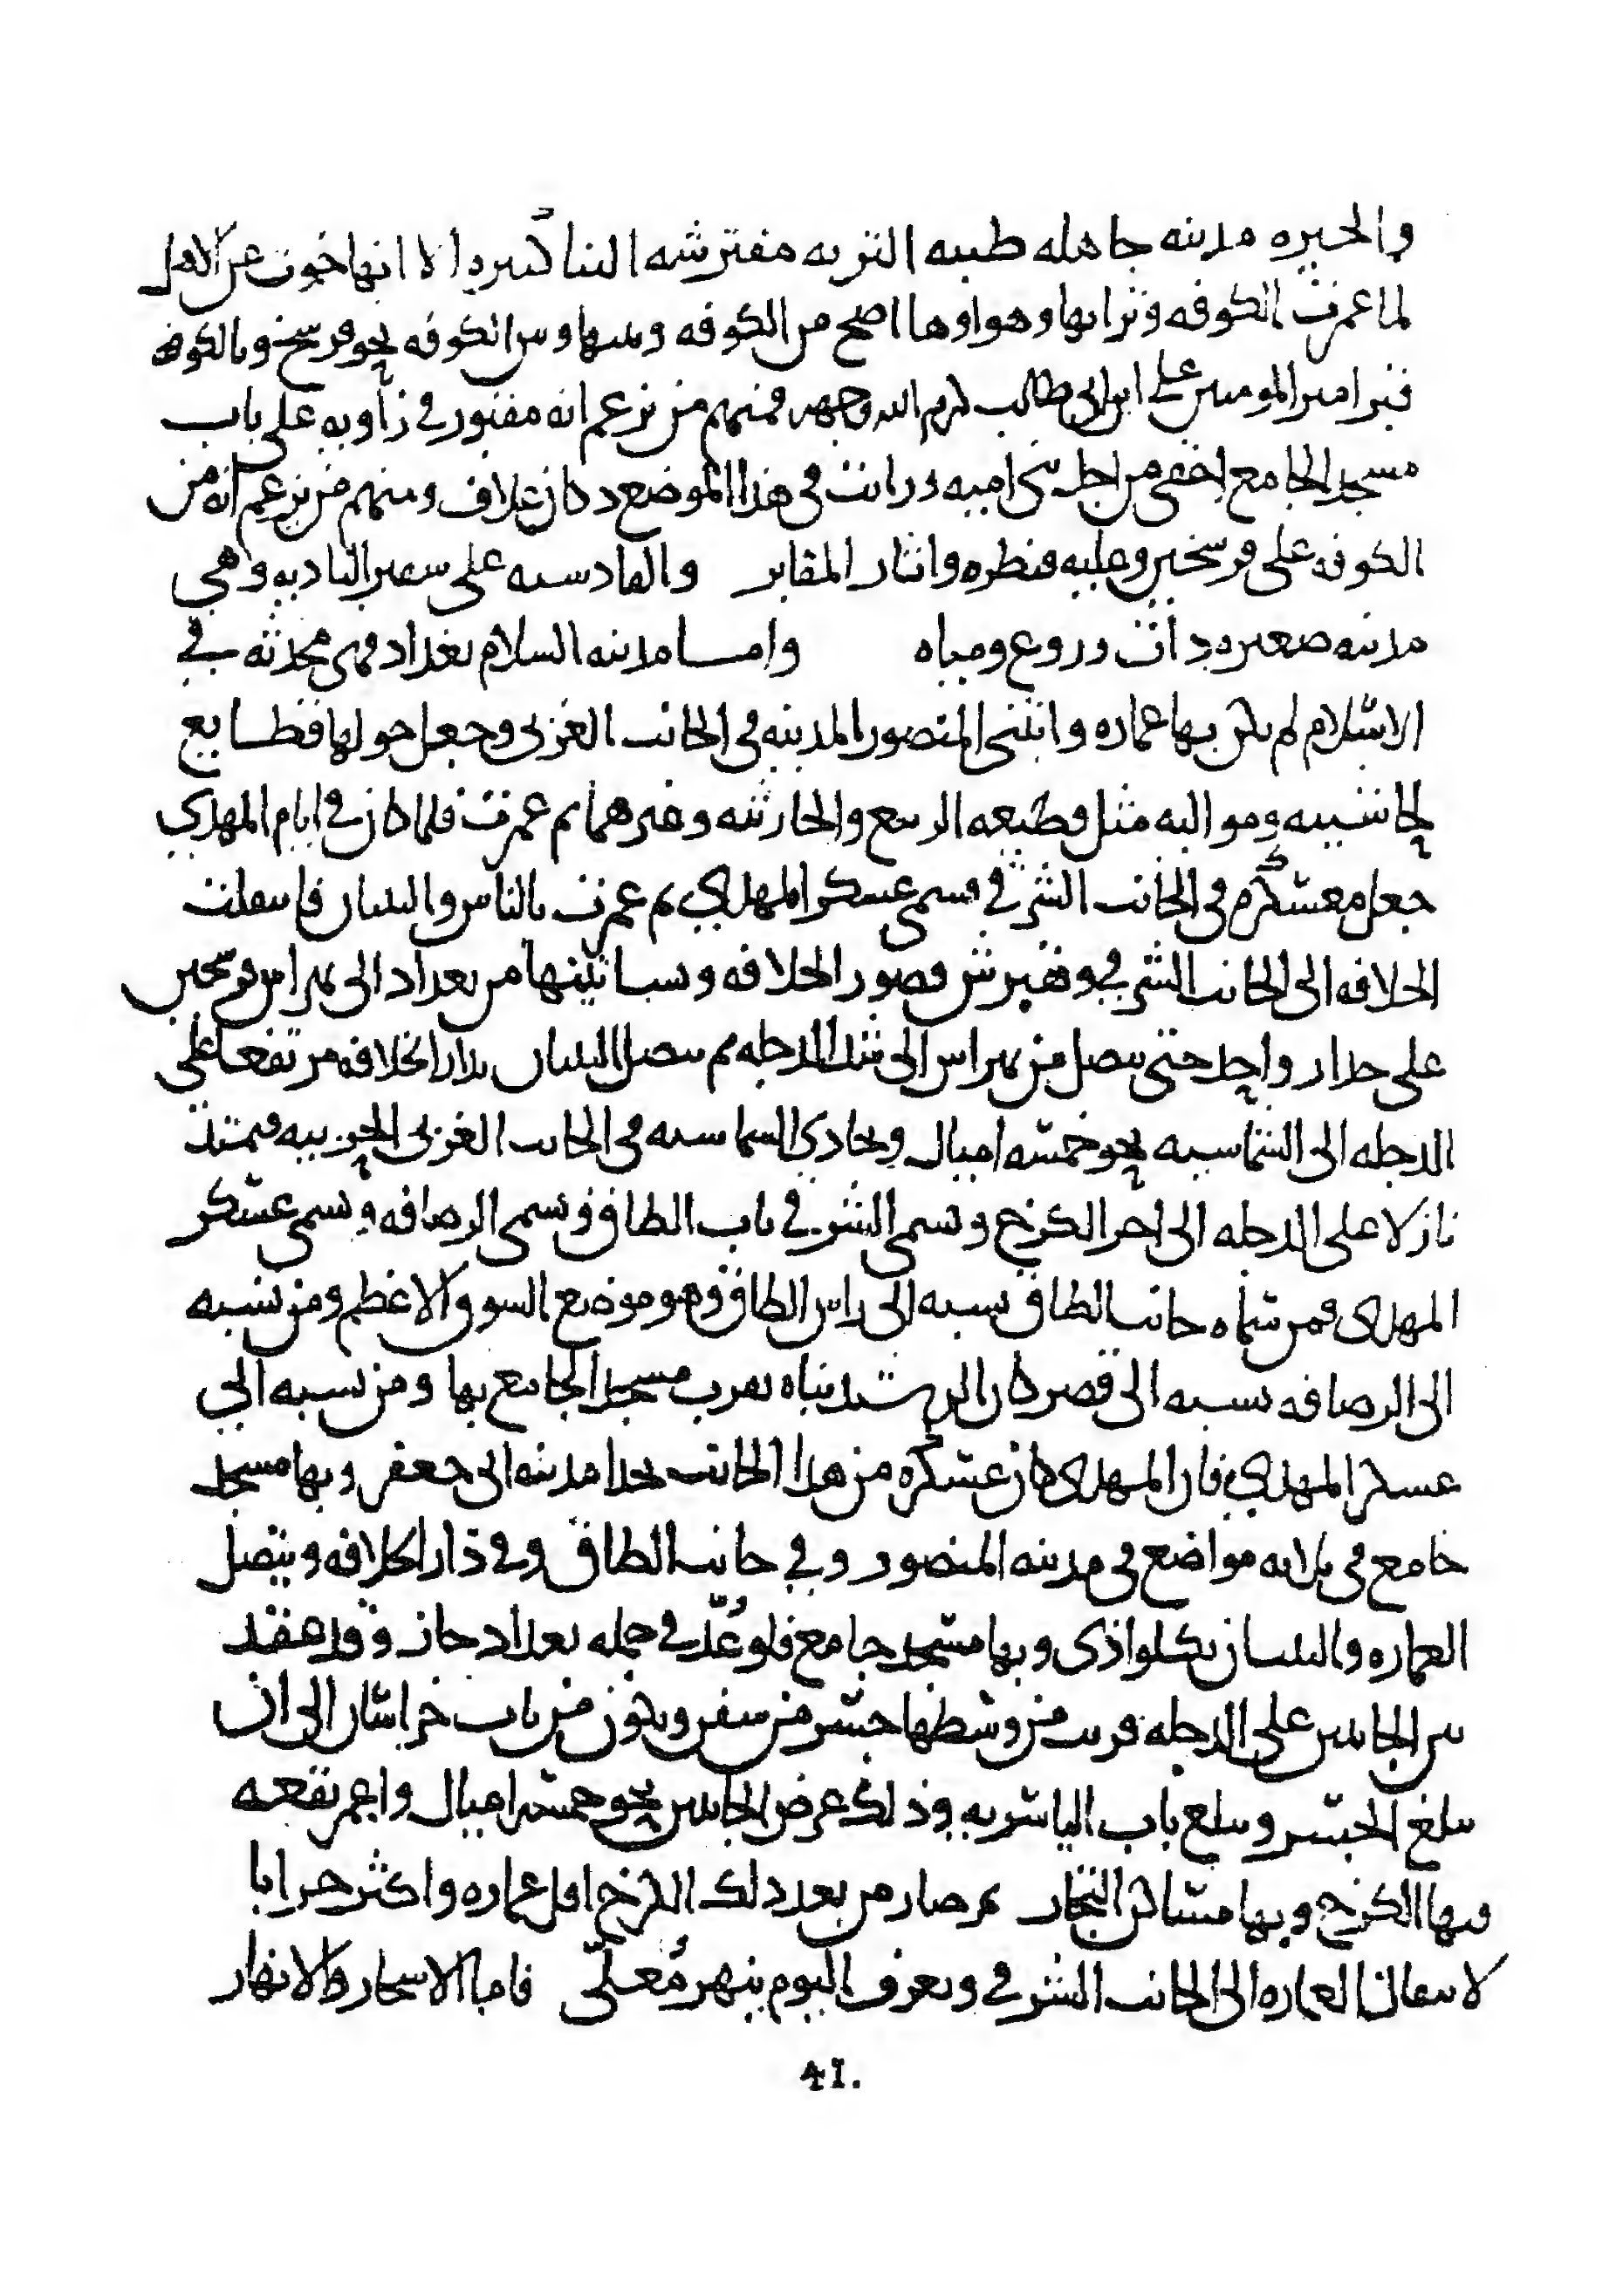 والحيره مدينه جاهله طيبه التربه مفترشه البنا كبيره الا انها خوت عن الاهل
لما عمرت الكوفه وترابها وهواوها اصح من الكوفه وبينها وبين الكوفه نحو فرسخ وبالكوفه
قبر امير المومنين على ابن ابى طالب كرم الله وجهه فمنهم من يزعم انه مقبور في زاويه على باب
مسجد الجامع اخفى من اجل بنى اميه ورايت فى هذا الموضع دكان علاف ومنهم من يزعم انه من
الكوفه على فرسخين وعليه قنطره واثار المقابر والقادسيه على شفير الباديه وهي
مدينه صغيره ذات زروع ومياه واما مدينه السلام بغداد فهى محدثه في
الاسلام لم يكن بها عماره وابتنى المنصور المدينه فى الجانب الغربى وجعل حولها قطايع
لحاشيته ومواليه مثل قطيعه الربيع والحارثيه وغيرهما ثم عمرت فلما كان في ايام المهدي
جعل معسكره فى الجانب الشرقي فسمى عسكر المهدي ثم عمرت بالناس والبنيان فانتقلت
الخلافه الى الجانب الشرقي وتفترش قصور الخلافه وبساتينها من بغداد الى نهر بين فرسخين
على جدار واحد حتى يتصل من نهر بين الى شط الدجله ثم يتصل البنيان بدار الخلافه مرتفعا على
الدجله الى الشماسيه نحو خمسه اميال ويحاذي الشماسيه فى الجانب الغربى الحربيه فيمتد
نازلا على الدجله الى اخر الكرخ ويسمى الشرقي باب الطاق ويسمى الرصافه ويسمى عسكر
المهدى فمن سماه جانب الطاق نسبه الى راس الطاق وهو موضع السوق الاعظم ومن نسبه
الى الرصافه نسبه الى قصر كان الرشيد بناه بقرب مسجد الجامع بها ومن نسبه الي
عسكر المهدي فان المهدى كان عسكره من هذا الجانب بحذا مدينه ابى جعفر وبها مسجد
جامع فى ثلاثه مواضع فى مدينه المنصور وفي جانب الطاق وفي دار الخلافه ويتصل
العماره والبنيان بكلواذى وبها مسجد جامع فلو عُدّ في جمله بغداد جاز وقد عقد
بين الجانبين على الدجله قريب من وسطها جسر من سفن ويكون من باب خراسان الى ان
يبلغ الجسر ويبلغ باب الياسريه وذلك عرض الجانبين نحو خمسه اميال واعمر بقعه
فيها الكرخ وبها مساكن التجار ثم صار من بعد ذلك الكرخ اقل عماره واكثر خرابا
لانتقال العماره الى الجانب الشرقي ويعرف اليوم بنهر مُعلّى فاما الاشجار والانهار
41.